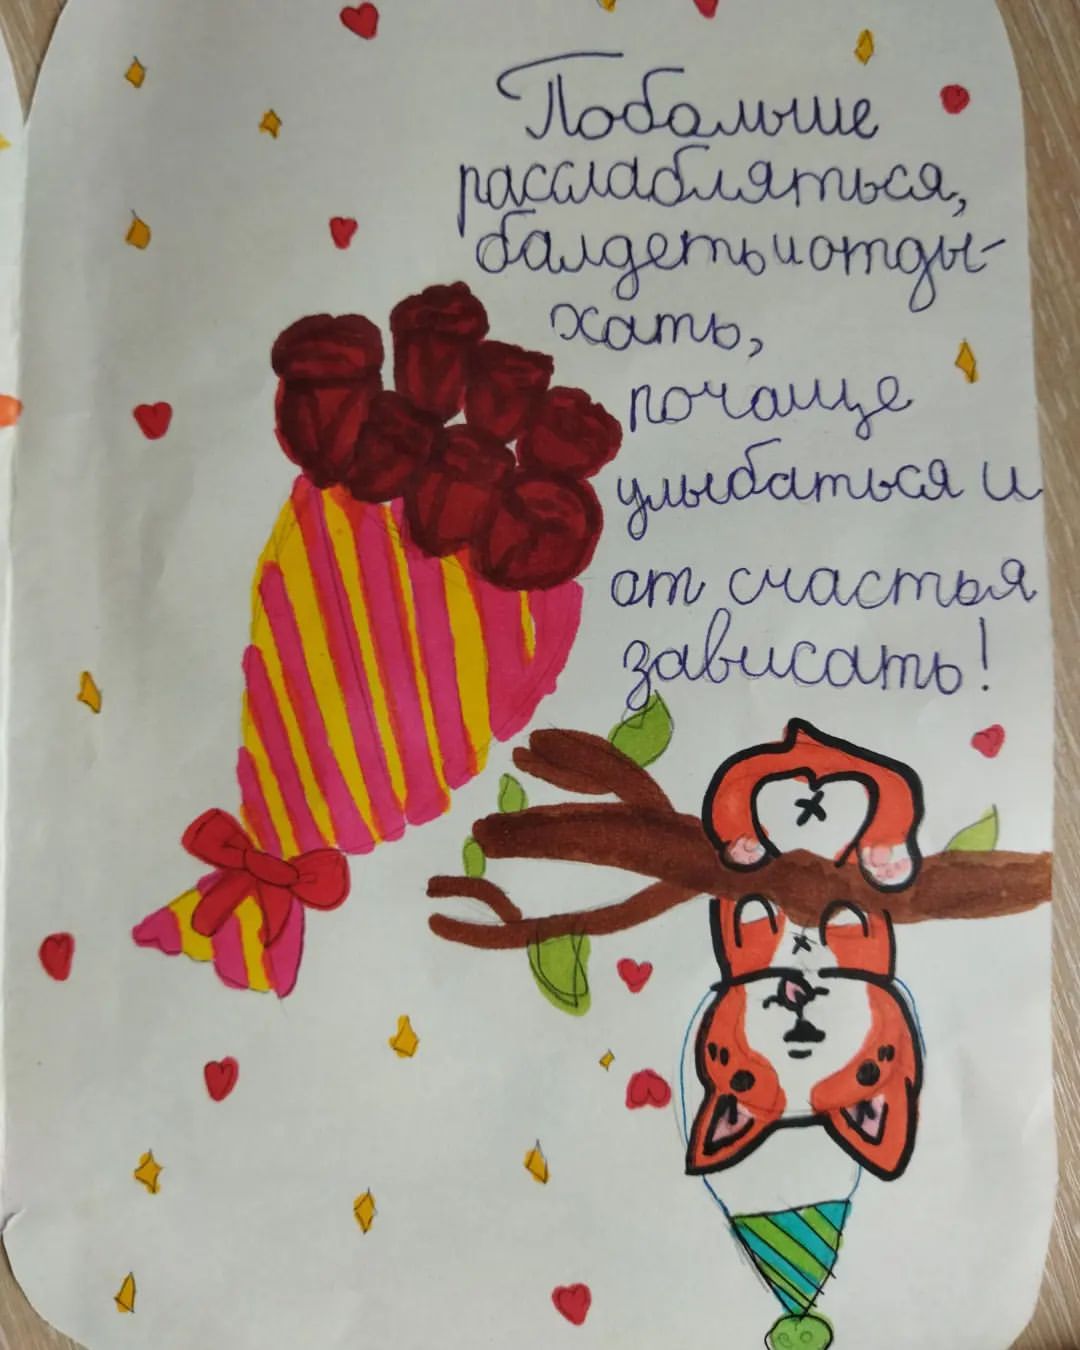 Побольше
расслабляться,
балдеть и отды-
хать,
почаще
улыбаться и
от счастья
зависать!